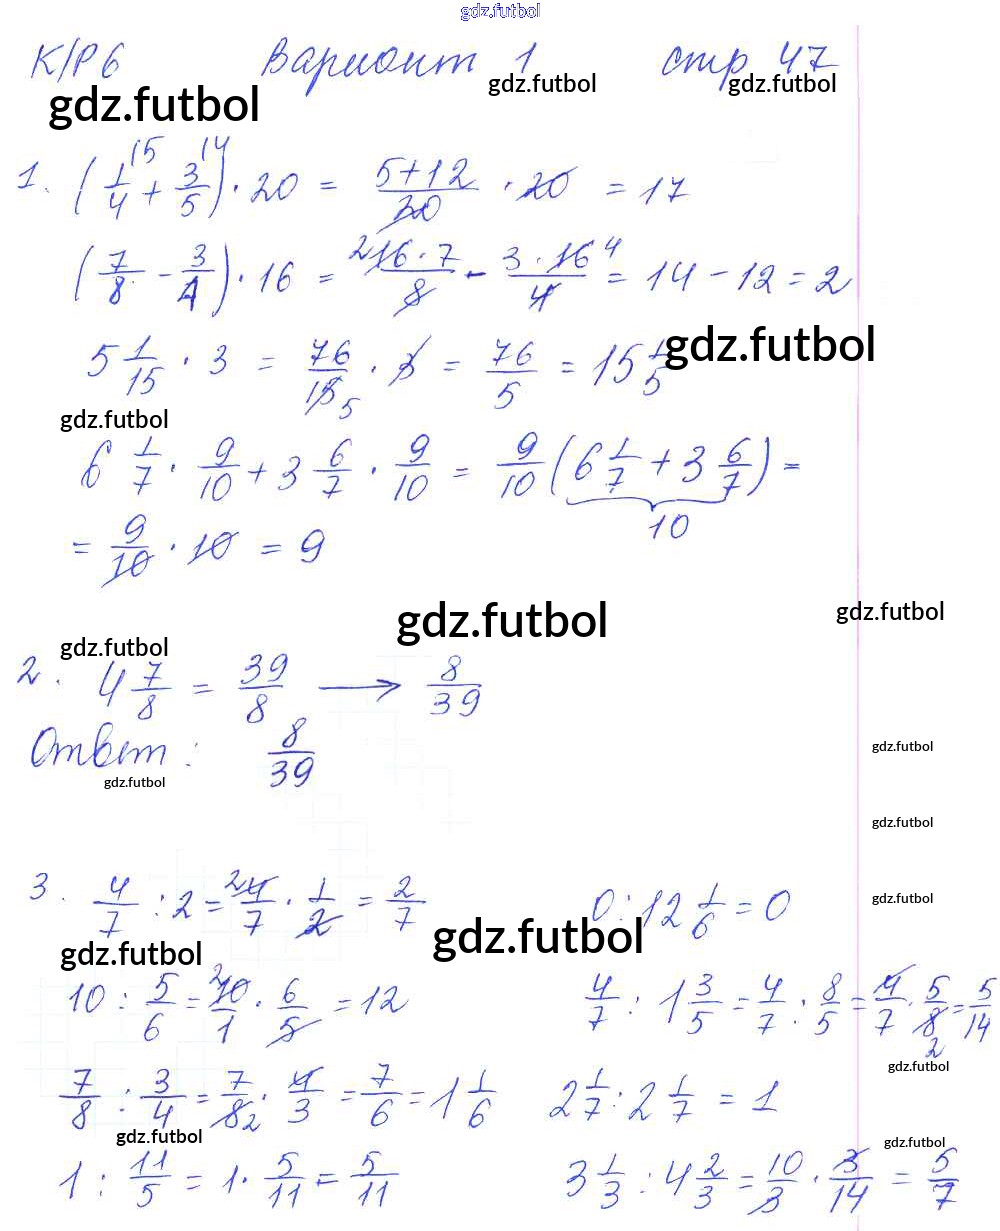 gdz.futbol
К/Р 6 Вариант 1 стр 47
gdz.futbol gdz.futbol
gdz.futbol
1. (1/4 ⁽⁵ + 3/5 ⁽⁴) · 20 = (5+12)/20 · 20 = 17
(7/8 - 3/4) · 16 = ²16·7/8 - 3·16⁴/4 = 14 - 12 = 2
gdz.futbol
5 1/15 · 3 = 76/15₅ · 3 = 76/5 = 15 1/5
gdz.futbol
6 1/7 · 9/10 + 3 6/7 · 9/10 = 9/10 (6 1/7 + 3 6/7) =
10
= 9/10 · 10 = 9
gdz.futbol gdz.futbol
gdz.futbol
2. 4 7/8 = 39/8 → 8/39
Ответ: 8/39
gdz.futbol
gdz.futbol
gdz.futbol
3. 4/7 : 2 = ²4/7 · 1/2 = 2/7 0 : 12 1/6 = 0
gdz.futbol
gdz.futbol gdz.futbol
10 : 5/6 = ²10/1 · 6/5 = 12 4/7 : 1 3/5 = 4/7 : 8/5 = 4/7 · 5/8₂ = 5/14
gdz.futbol
7/8 : 3/4 = 7/8₂ · 4/3 = 7/6 = 1 1/6 2 1/7 : 2 1/7 = 1
gdz.futbol gdz.futbol
1 : 11/5 = 1 · 5/11 = 5/11 3 1/3 : 4 2/3 = 10/3 · 3/14 = 5/7